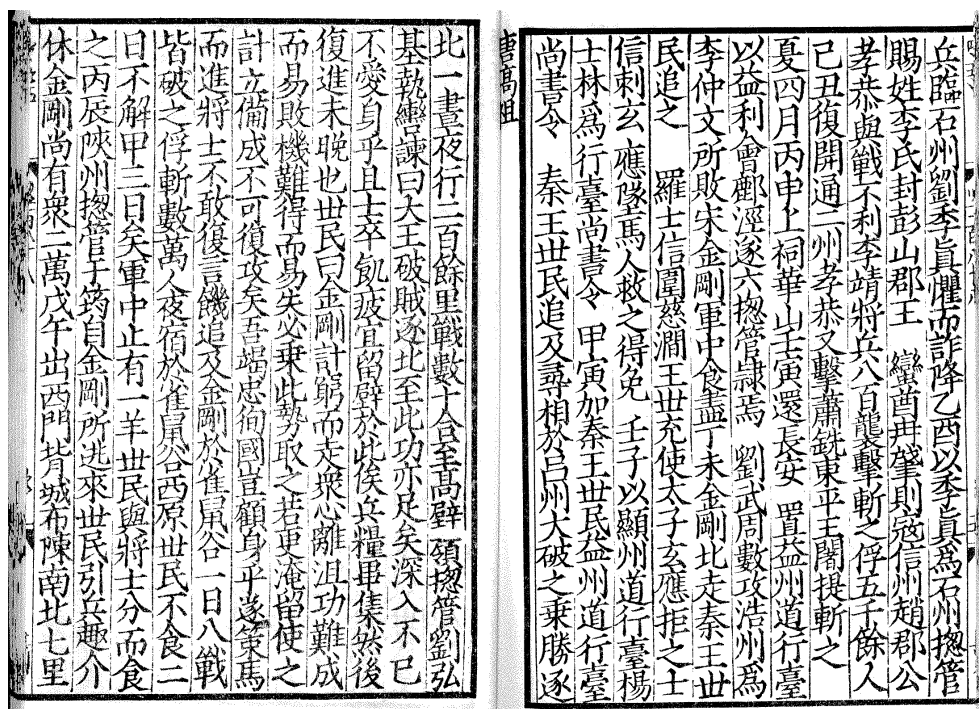 兵臨石州劉季眞懼而詐降乙酉以季眞爲石州揔管
賜姓李氏封彭山郡王　蠻酋冉肇則寇信州趙郡公
孝恭與戰不利李靖將兵八百襲擊斬之俘五千餘人
己丑復開通二州孝恭又擊蕭銑東平王闍提斬之
夏四月丙申上祠華山壬寅還長安　置益州道行臺
以益利會鄜涇遂六揔管隷焉　劉武周數攻浩州爲
李仲文所敗宋金剛軍中食盡丁未金剛北走秦王世
民追之　羅士信圍慈澗王世充使太子玄應拒之士
信刺玄應墜馬人救之得免　壬子以顯州道行臺楊
士林爲行臺尚書令　甲寅加秦王世民益州道行臺
尚書令　秦王世民追及尋相於呂州大破之乗勝逐
唐髙祖
北一晝夜行二百餘里戰數十合至髙壁嶺揔管劉弘
基執轡諫曰大王破賊逐北至此功亦足矣深入不已
不愛身乎且士卒飢疲宜留壁於此俟兵糧畢集然後
復進未晚也世民曰金剛計窮而走衆心離沮功難成
而易敗機難得而易失必乗此勢取之若更淹留使之
計立備成不可復攻矣吾竭忠徇國豈顧身乎遂策馬
而進將士不敢復言饑追及金剛於雀鼠谷一日八戰
皆破之俘斬數萬人夜宿於雀鼠谷西原世民不食二
日不解甲三日矣軍中止有一羊世民與將士分而食
之丙辰陜州揔管于筠自金剛所逃來世民引兵趣介
休金剛尚有衆二萬戊午出西門背城布陳南北七里